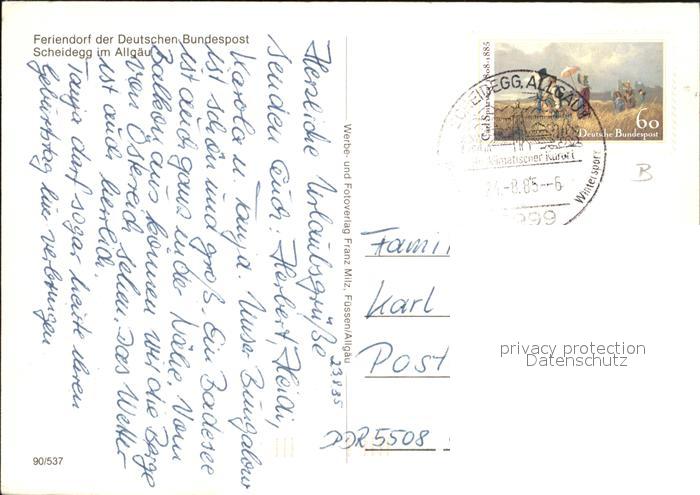 Feriendorf der Deutschen Bundespost
Scheidegg im Allgäu
Herzliche Urlaubsgrüße
senden Euch: Herbert, Heidi,
Karola u. Tanja. Unser Bungalow
ist schön und groß. Ein Badesee
ist auch ganz in der Nähe. Vom
Balkon aus können wir die Berge
von Österreich sehen. Das Wetter
ist auch herrlich.
Tanja darf sogar heute ihren
Geburtstag hier verbringen.
23835
Werbe- und Fotoverlag Franz Milz, Füssen/Allgäu
90/537
Carl Spitzweg 1808-1885
60
Deutsche Bundespost
SCHEIDEGG, ALLGÄU
Klimatischer Kurort
Wintersport
-8.85--6
B
Famil
Karl
Post
DDR 5508
privacy protection
Datenschutz